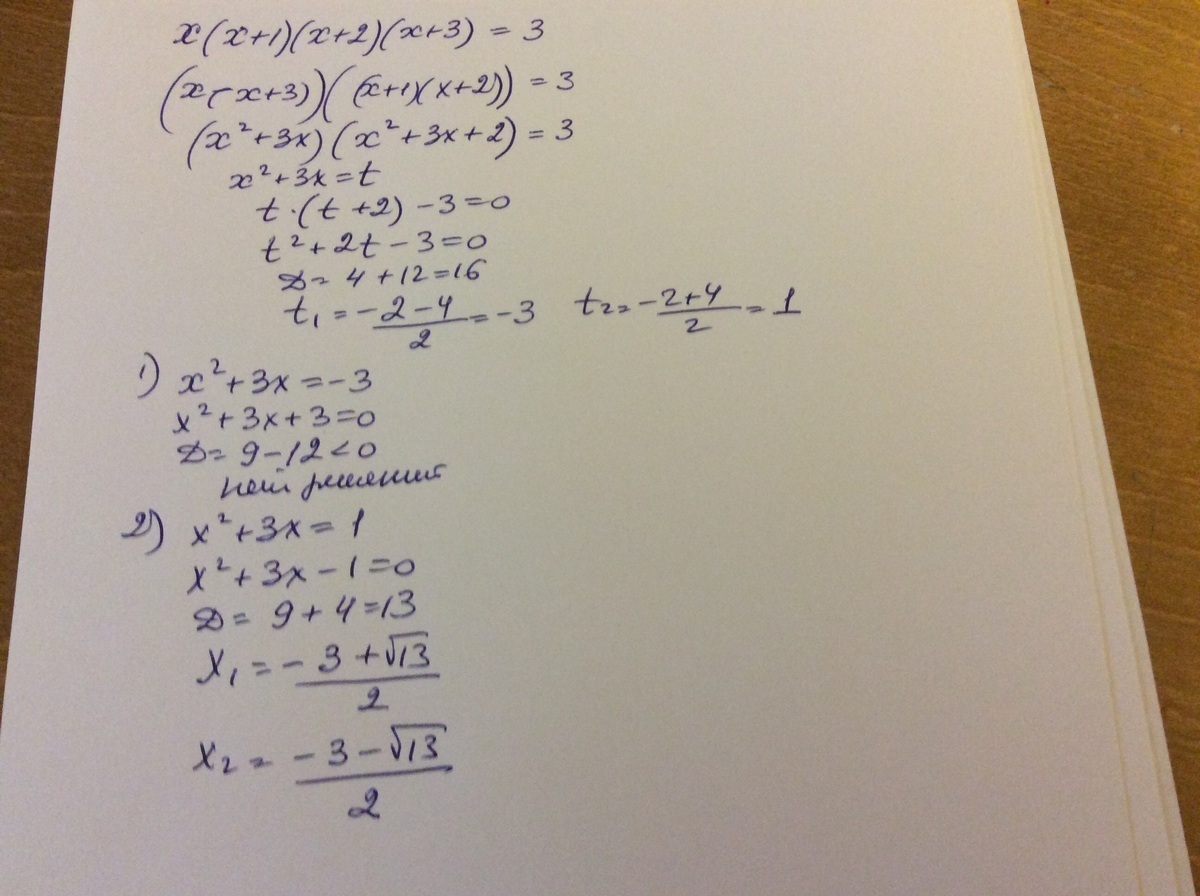 x(x+1)(x+2)(x+3) = 3
(x(x+3))((x+1)(x+2)) = 3
(x²+3x)(x²+3x+2) = 3
x²+3x=t
t·(t+2)-3=0
t²+2t-3=0
D= 4+12=16
t₁ = (-2-4)/2 = -3 t₂= (-2+4)/2 = 1
1) x²+3x=-3
x²+3x+3=0
D= 9-12<0
нет решений
2) x²+3x= 1
x²+3x-1=0
D= 9+4=13
x₁ = (-3+√13)/2
x₂ = (-3-√13)/2